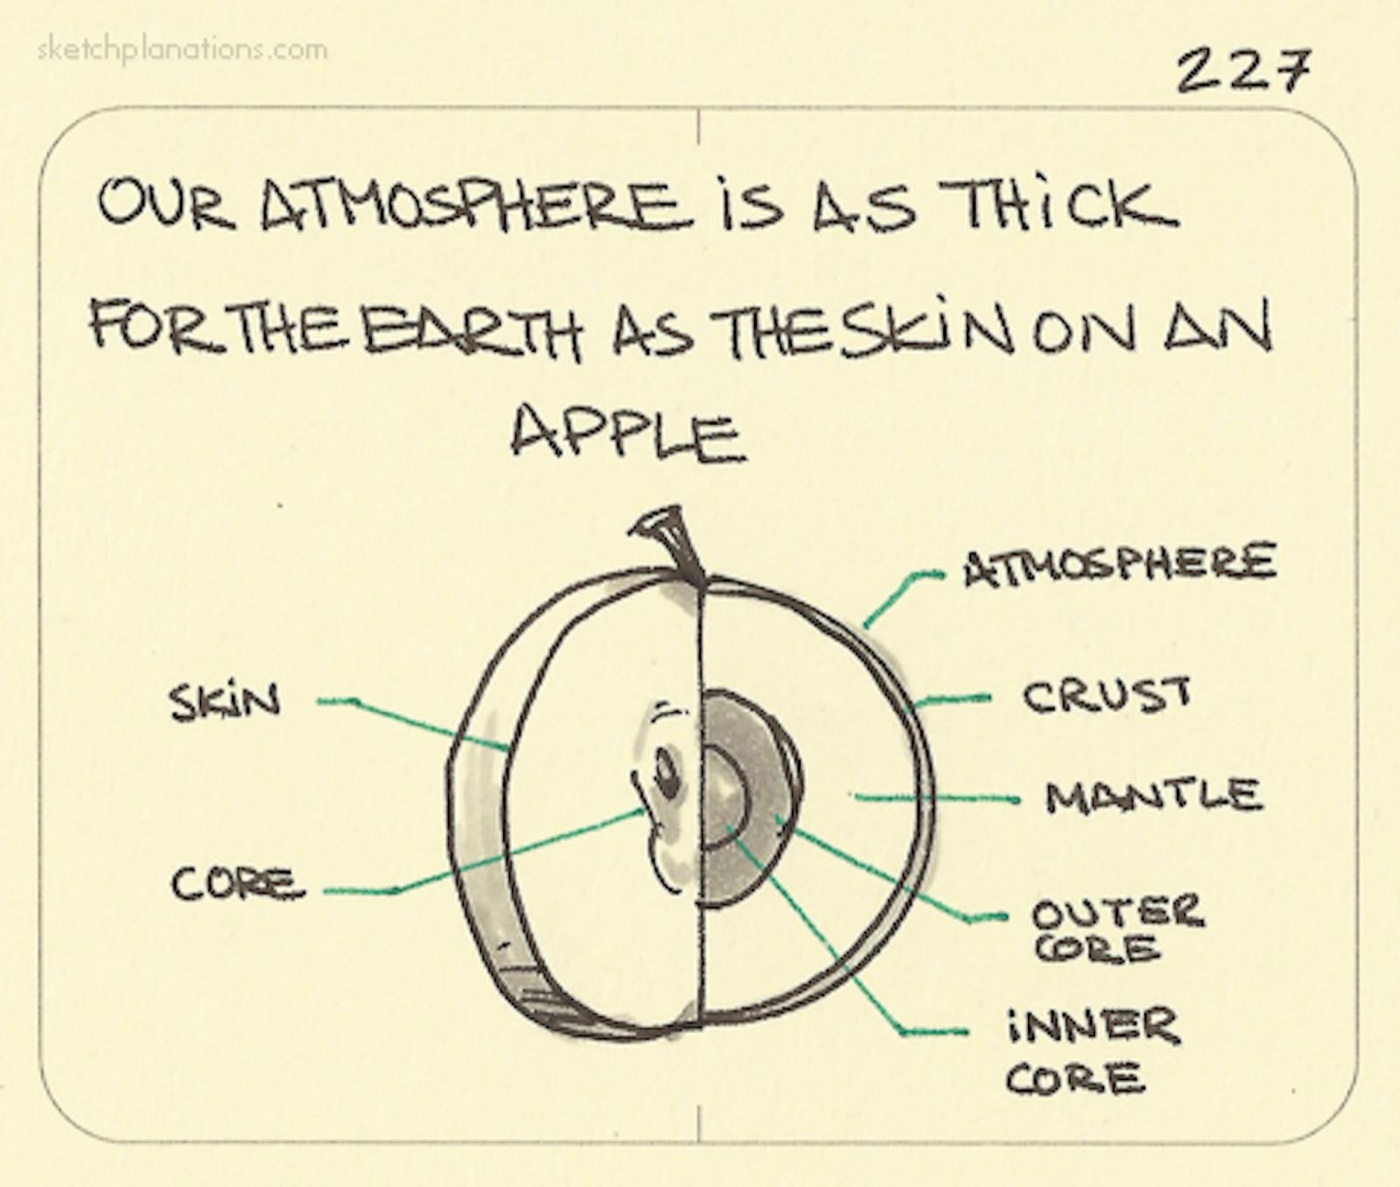 sketchplanations.com
227
OUR ATMOSPHERE iS AS THiCK
FOR THE EARTH AS THE SKiN ON AN
APPLE
ATMOSPHERE
SKiN
CRUST
MANTLE
CORE
OUTER
CORE
iNNER
CORE